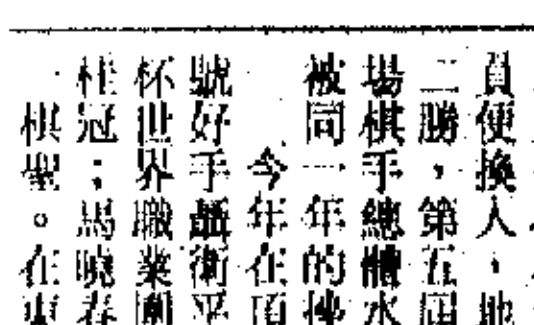 負便換人,地
二勝,第五屆
場棋手總體水
被同一年的挿
今年在頂
號好手聶衛平
杯世界職業圍
桂冠;馬曉春
棋聖。在東